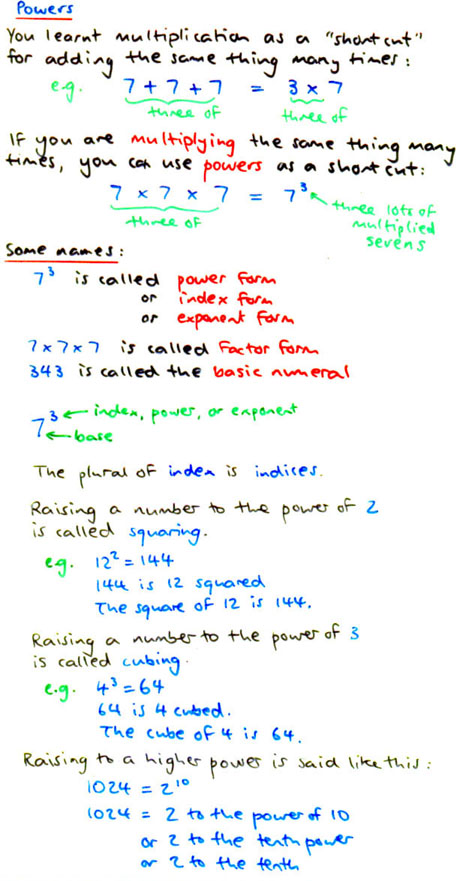 Powers
You learnt multiplication as a "short cut"
for adding the same thing many times:
e.g. 7 + 7 + 7 = 3 × 7
three of three of
If you are multiplying the same thing many
times, you can use powers as a short cut:
7 × 7 × 7 = 7³ ← three lots of
multiplied
sevens
three of
Some names:
7³ is called power form
or index form
or exponent form
7×7×7 is called factor form
343 is called the basic numeral
7³ ← index, power, or exponent
← base
The plural of index is indices.
Raising a number to the power of 2
is called squaring.
eg. 12² = 144
144 is 12 squared
The square of 12 is 144.
Raising a number to the power of 3
is called cubing.
e.g. 4³ = 64
64 is 4 cubed.
The cube of 4 is 64.
Raising to a higher power is said like this:
1024 = 2¹⁰
1024 = 2 to the power of 10
or 2 to the tenth power
or 2 to the tenth